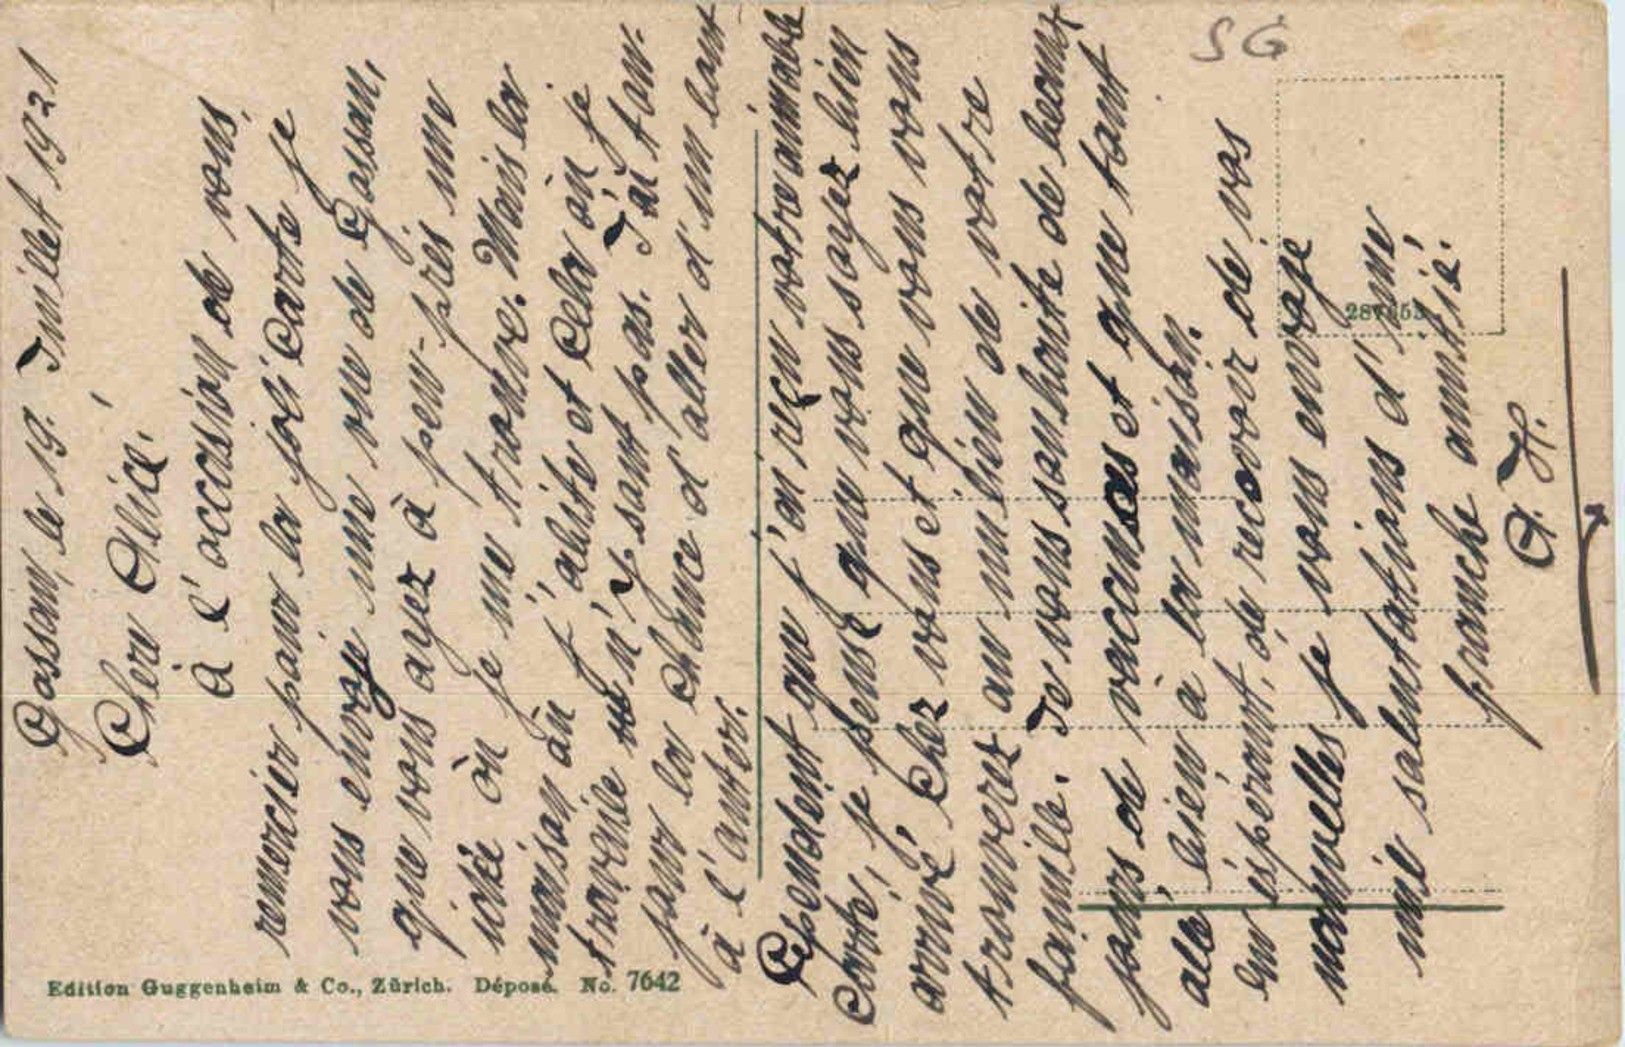 Gossau, le 19. Juillet 1921
Chère Alice,
à l'occasion de vous
remercier pour la joli carte je
vous envoje une vue de Gossau,
que vous ayez à peu-près une
idée òn je me trouve. Mais la
maison òn j'abite et cela òn je
travaile n'y sont pas. J'ai tou-
jour la chance d'aller d'un bout
à l'auter.
Cependent que j'ai reçu votre aimable
Carte, je pense que vous soyez bien
arrivé chez vous et que vous vous
trouverez au milieu de votre
famille. Je vous souhaite de beaux
jours de vacances et que tout
ale bien à la maison.
En espérant, de recevoir de vos
nouvelles je vous envoje
mie salutations d'une
franche amitié.
A. H.
SG
287653
Edition Guggenheim & Co., Zürich. Déposé. No. 7642